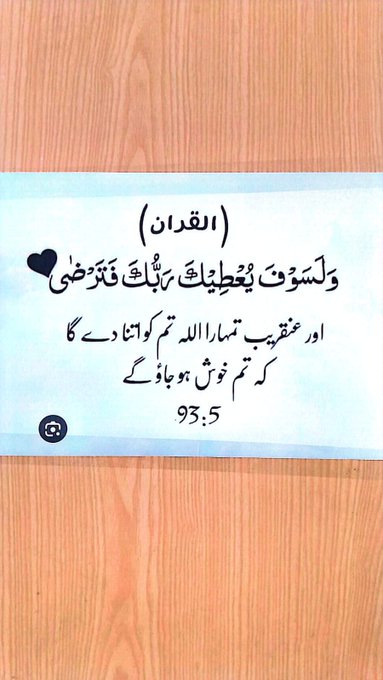 (القرآن)
وَلَسَوْفَ يُعْطِيْكَ رَبُّكَ فَتَرْضٰى
اور عنقریب تمہارا اللہ تم کو اتنا دے گا
کہ تم خوش ہو جاؤ گے
93:5